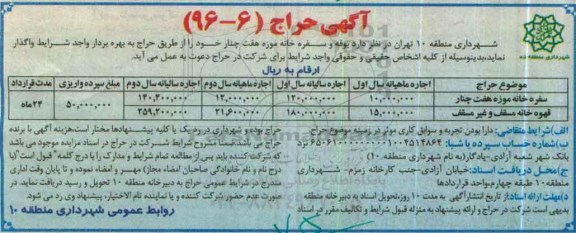 آگهی حراج (۶-۹۶)
شهرداری منطقه ۱۰
شهرداری منطقه ۱۰ تهران در نظر دارد بوفه و سفره خانه موزه هفت چنار خود را از طریق حراج به بهره بردار واجد شرایط واگذار
نماید،بدینوسیله از کلیه اشخاص حقیقی و حقوقی واجد شرایط برای شرکت در حراج دعوت به عمل می آید.
ارقام به ریال
موضوع حراج اجاره ماهیانه سال اول اجاره سالیانه سال اول اجاره ماهیانه سال دوم اجاره سالیانه سال دوم مبلغ سپرده واریزی مدت قرارداد
سفره خانه موزه هفت چنار ۱۰,۰۰۰,۰۰۰ ۱۲۰,۰۰۰,۰۰۰ ۱۲,۰۰۰,۰۰۰ ۱۴۰,۴۰۰,۰۰۰ ۵۰,۰۰۰,۰۰۰ ۲۴ماه
قهوه خانه مسقف و غیر مسقف ۱۵,۰۰۰,۰۰۰ ۱۸۰,۰۰۰,۰۰۰ ۲۱,۶۰۰,۰۰۰ ۲۵۹,۲۰۰,۰۰۰
الف)شرایط متقاضی: دارا بودن تجربه و سوابق کاری موثر در زمینه موضوع حراج
ب)شماره حساب سپرده یا شبا: نزد
بانک شهر شعبه آزادی-یادگار(به نام شهرداری منطقه ۱۰)
ج)محل دریافت اسناد:خیابان آزادی-جنب کارخانه زمزم- شهرداری
منطقه ۱۰ طبقه چهارم-واحد قراردادها
د)مهلت ارائه اسناد:از تاریخ انتشار آگهی به مدت ۱۰ روز،تحویل اسناد به دبیرخانه منطقه
بدیهی است شرکت در حراج و ارائه پیشنهاد به منزله قبول شرایط و تکالیف مقرر در اسناد
حراج بوده و شهرداری در رد یک یا کلیه پیشنهادها مختار است.هزینه آگهی با برنده
حراج می باشد.ضمنا مشروح شرایط شرکت در حراج در اسناد مزایده موجود می باشد
که شرکت کننده باید پس از مطالعه تمام شرایط و مدارک را با درج کلمه" قبول است"(با
درج نام و نام خانوادگی صاحبان امضاء مجاز) مهر و امضاء نموده و تا پایان وقت اداری
مندرج در شرایط عمومی حراج به دبیرخانه منطقه ۱۰ تحویل و رسید دریافت نماید. در
صورت عدم حضور شرکت کننده و یا نماینده تام الاختیار، پیشنهاد وی رد می شود.
روابط عمومی شهرداری منطقه ۱۰